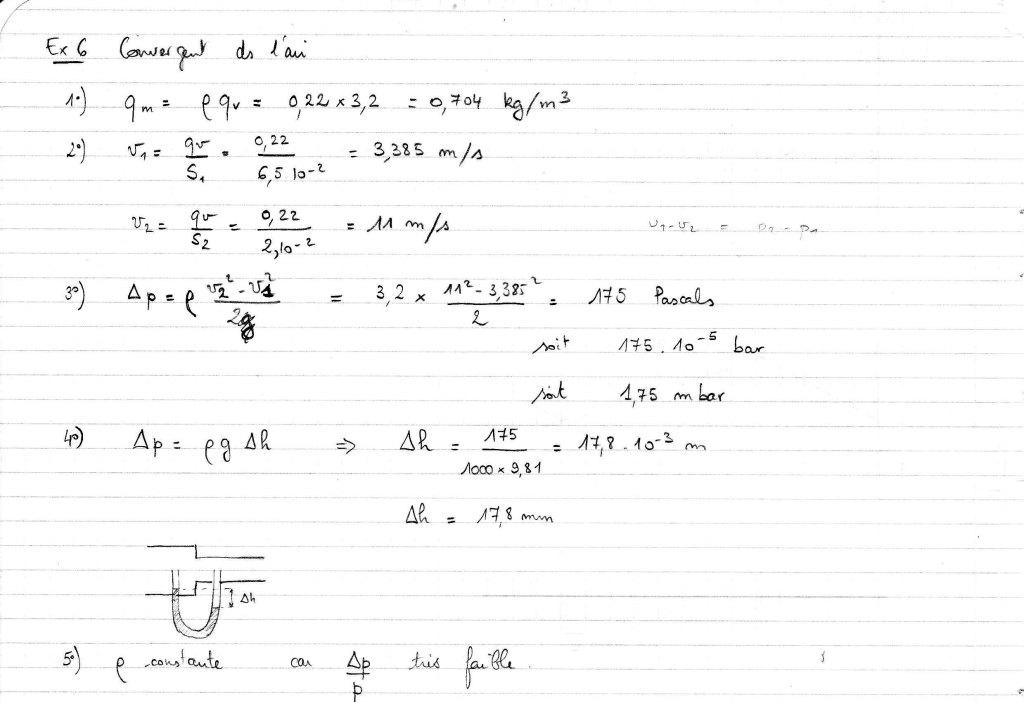 Ex 6 Convergent ds l'air
1°) qm = ρ qv = 0,22 × 3,2 = 0,704 kg/m³
2°) v₁ = qv/S₁ = 0,22/6,5 10⁻² = 3,385 m/s
v₂ = qv/S₂ = 0,22/2,10⁻² = 11 m/s v₁-v₂ = p₂-p₁
3°) Δp = ρ (v₂² - v₁²)/2 = 3,2 × (11² - 3,385²)/2 = 175 Pascals
soit 175 . 10⁻⁵ bar
soit 1,75 m bar
4°) Δp = ρ g Δh ⇒ Δh = 175/1000 × 9,81 = 17,8 . 10⁻³ m
Δh = 17,8 mm
Δh
5°) ρ constante car Δp/p très faible.